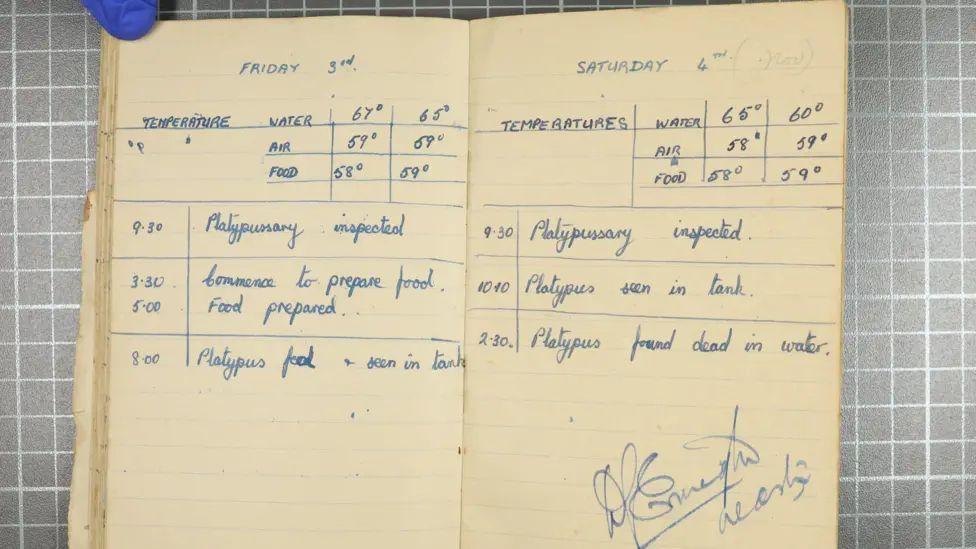 FRIDAY 3rd.
TEMPERATURE WATER 67° 65°
" P " AIR 59° 59°
FOOD 58° 59°
9.30 Platypussary inspected
3.30 Commence to prepare food.
5.00 Food prepared.
8.00 Platypus food + seen in tank
SATURDAY 4TH. (Nov)
TEMPERATURES WATER 65° 60°
AIR 58° 59°
FOOD 58° 59°
9.30 Platypussary inspected.
10.10 Platypus seen in tank.
2.30. Platypus found dead in water.